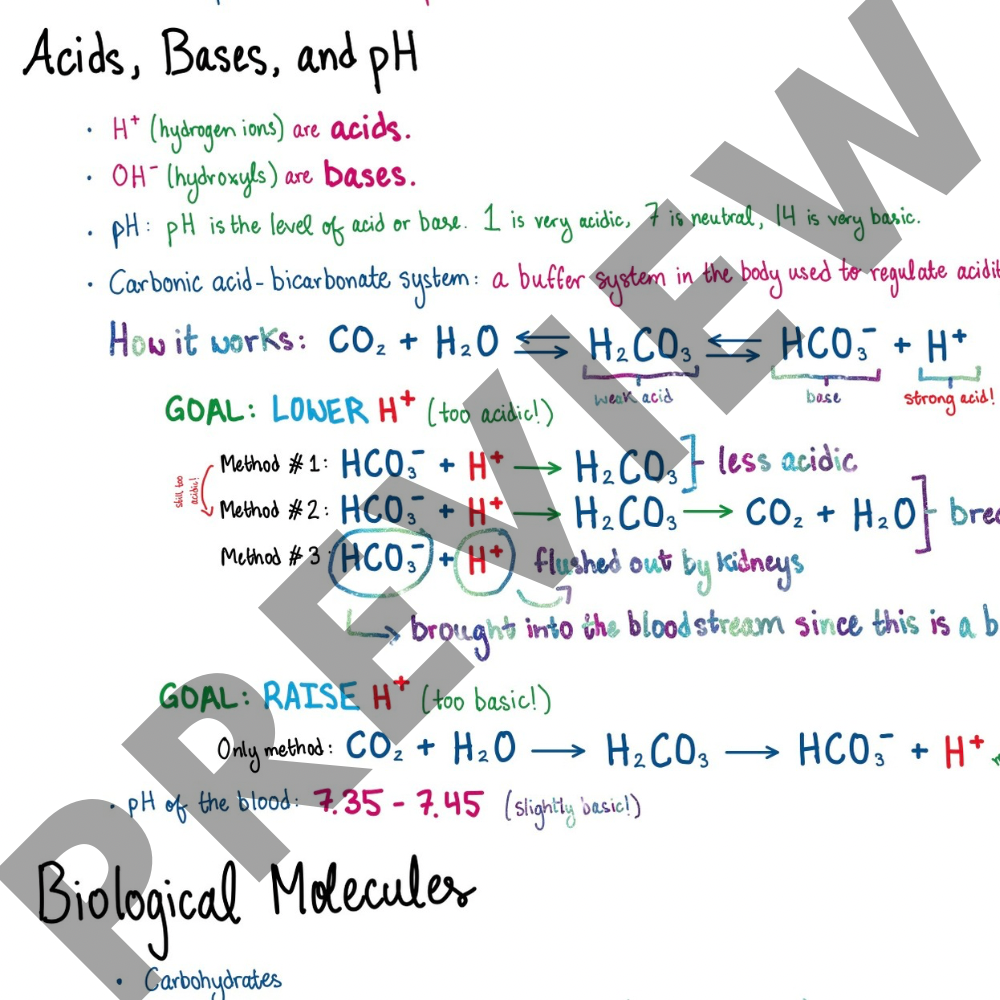 Acids, Bases, and pH
• H⁺ (hydrogen ions) are acids.
• OH⁻ (hydroxyls) are bases.
• pH: pH is the level of acid or base. 1 is very acidic, 7 is neutral, 14 is very basic.
• Carbonic acid-bicarbonate system: a buffer system in the body used to regulate acidit
How it works: CO₂ + H₂O ⇌ H₂CO₃ ⇌ HCO₃⁻ + H⁺
weak acid base strong acid!
GOAL: LOWER H⁺ (too acidic!)
Method #1: HCO₃⁻ + H⁺ → H₂CO₃ } less acidic
still too acidic!
Method #2: HCO₃⁻ + H⁺ → H₂CO₃ → CO₂ + H₂O } brea
Method #3: HCO₃⁻ + H⁺ flushed out by kidneys
→ brought into the bloodstream since this is a b
GOAL: RAISE H⁺ (too basic!)
Only method: CO₂ + H₂O → H₂CO₃ → HCO₃⁻ + H⁺
• pH of the blood: 7.35 - 7.45 (slightly basic!)
Biological Molecules
• Carbohydrates
PREVIEW